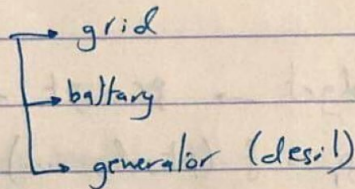 grid
battary
generator (desil)